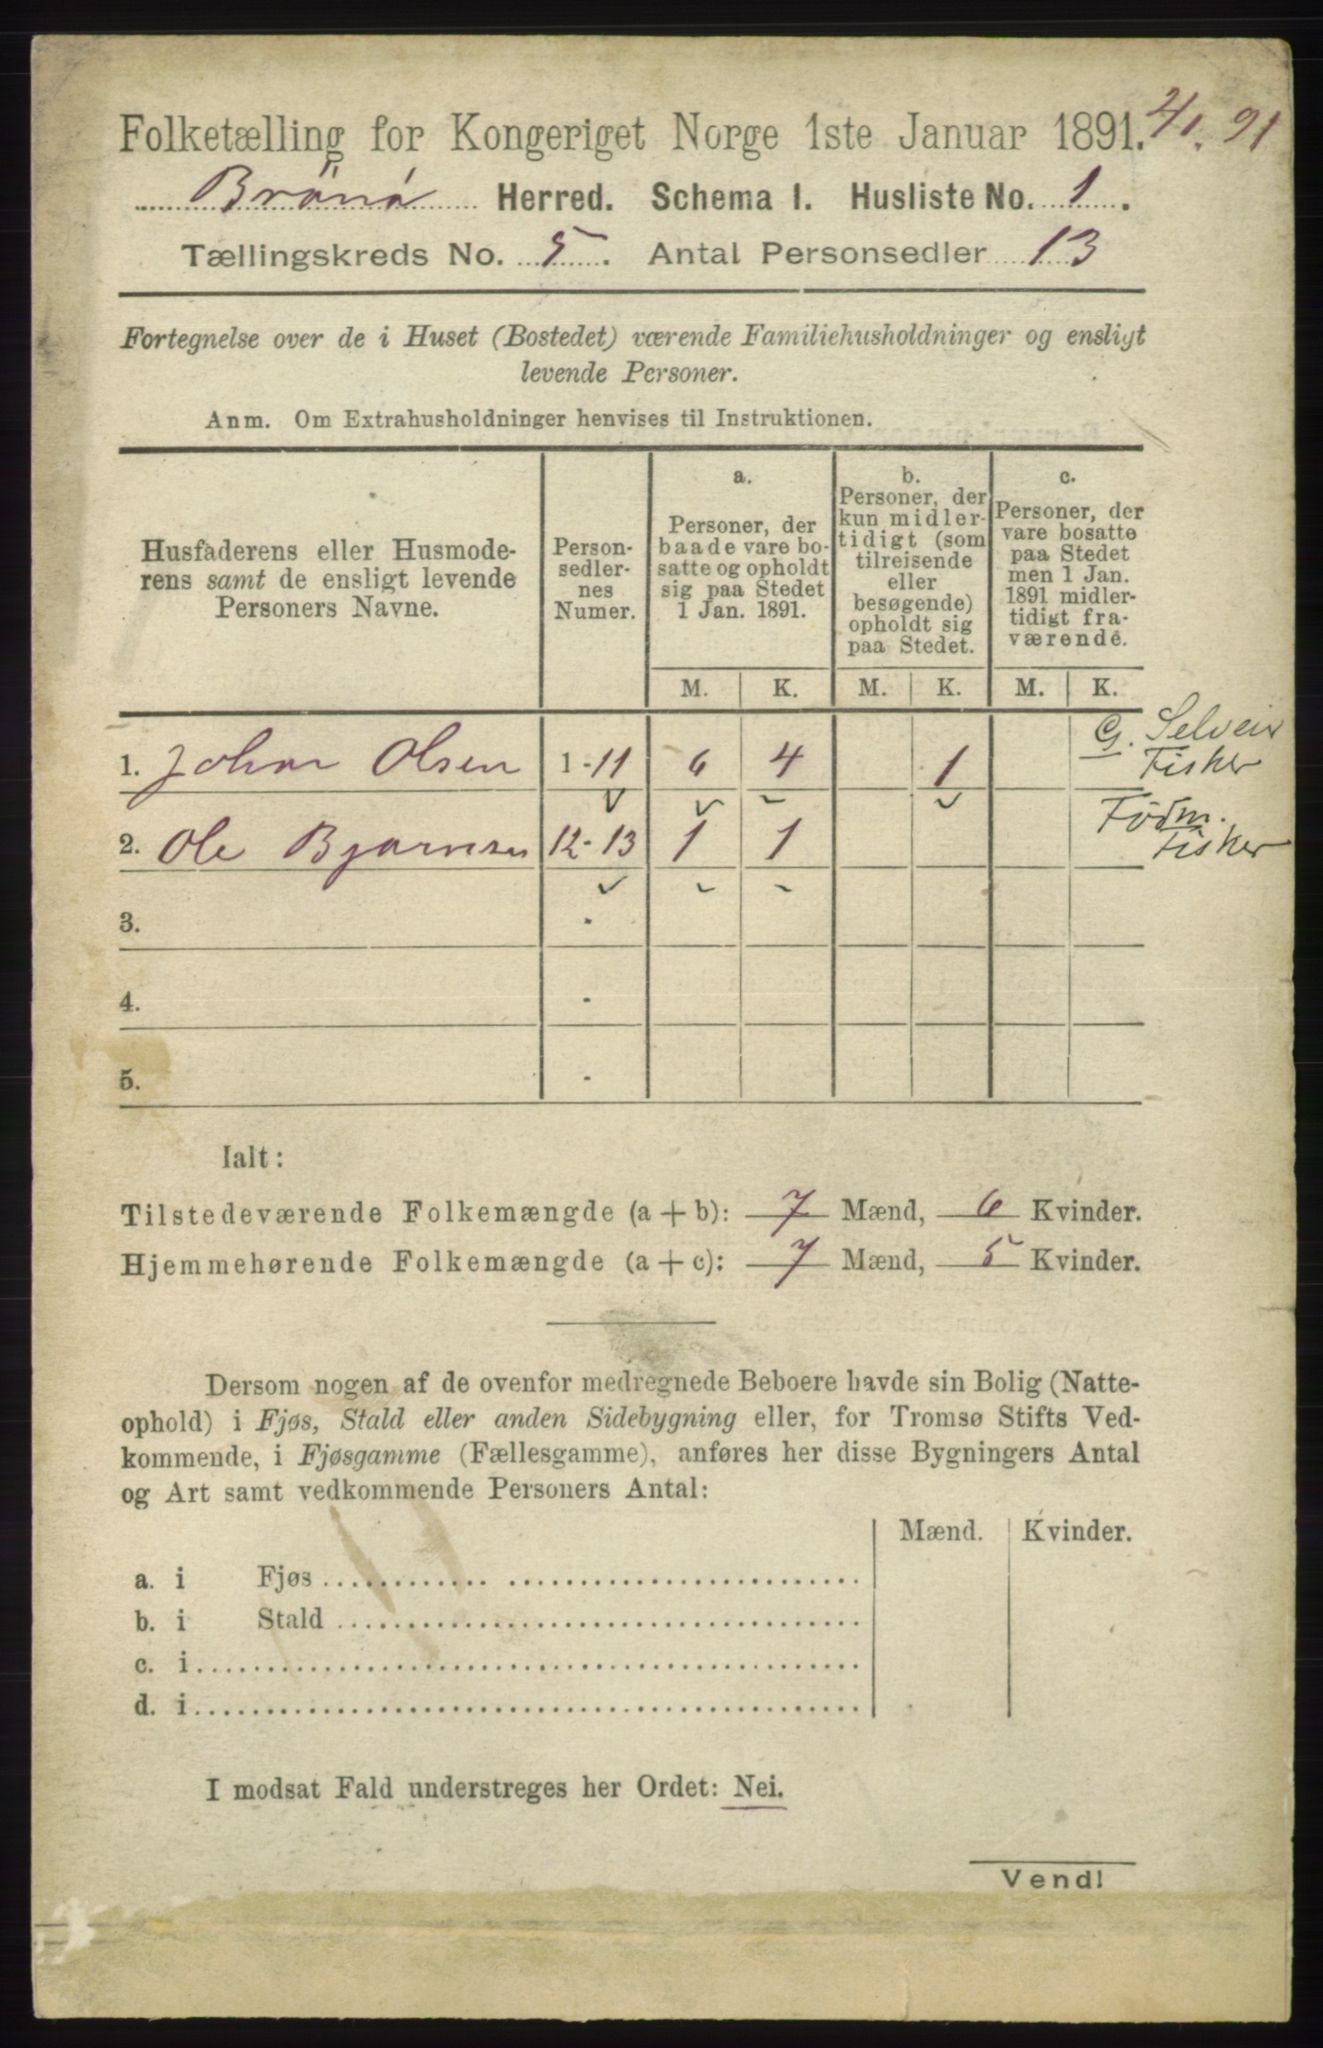 Folketælling for Kongeriget Norge 1ste Januar 1891.
Brönö Herred. Schema I. Husliste No. 1.
Tællingskreds No. 5. Antal Personsedler 13
Fortegnelse over de i Huset (Bostedet) værende Familiehusholdninger og ensligt
levende Personer.
Anm. Om Extrahusholdninger henvises til Instruktionen.
Husfaderens eller Husmode-
rens samt de ensligt levende
Personers Navne.
Person-
sedler-
nes
Numer.
a.
Personer, der
baade vare bo-
satte og opholdt
sig paa Stedet
1 Jan. 1891.
b.
Personer, der
kun midler-
tidigt (som
tilreisende
eller
besøgende)
opholdt sig
paa Stedet.
c.
Personer, der
vare bosatte
paa Stedet
men 1 Jan.
1891 midler-
tidigt fra-
værende.
M. K. M. K. M. K.
1. Johan Olsen 1-11 6 4 1 G. Selveir
Fisker
2. Ole Bjørnsen 12-13 1 1 Födm.
Fisker
3. -
4. -
5. -
Ialt:
Tilstedeværende Folkemængde (a + b): 7 Mænd, 6 Kvinder.
Hjemmehørende Folkemængde (a + c): 7 Mænd, 5 Kvinder.
Dersom nogen af de ovenfor medregnede Beboere havde sin Bolig (Natte-
ophold) i Fjøs, Stald eller anden Sidebygning eller, for Tromsø Stifts Ved-
kommende, i Fjøsgamme (Fællesgamme), anføres her disse Bygningers Antal
og Art samt vedkommende Personers Antal:
Mænd. Kvinder.
a. i Fjøs
b. i Stald
c. i
d. i
I modsat Fald understreges her Ordet: Nei.
Vend!